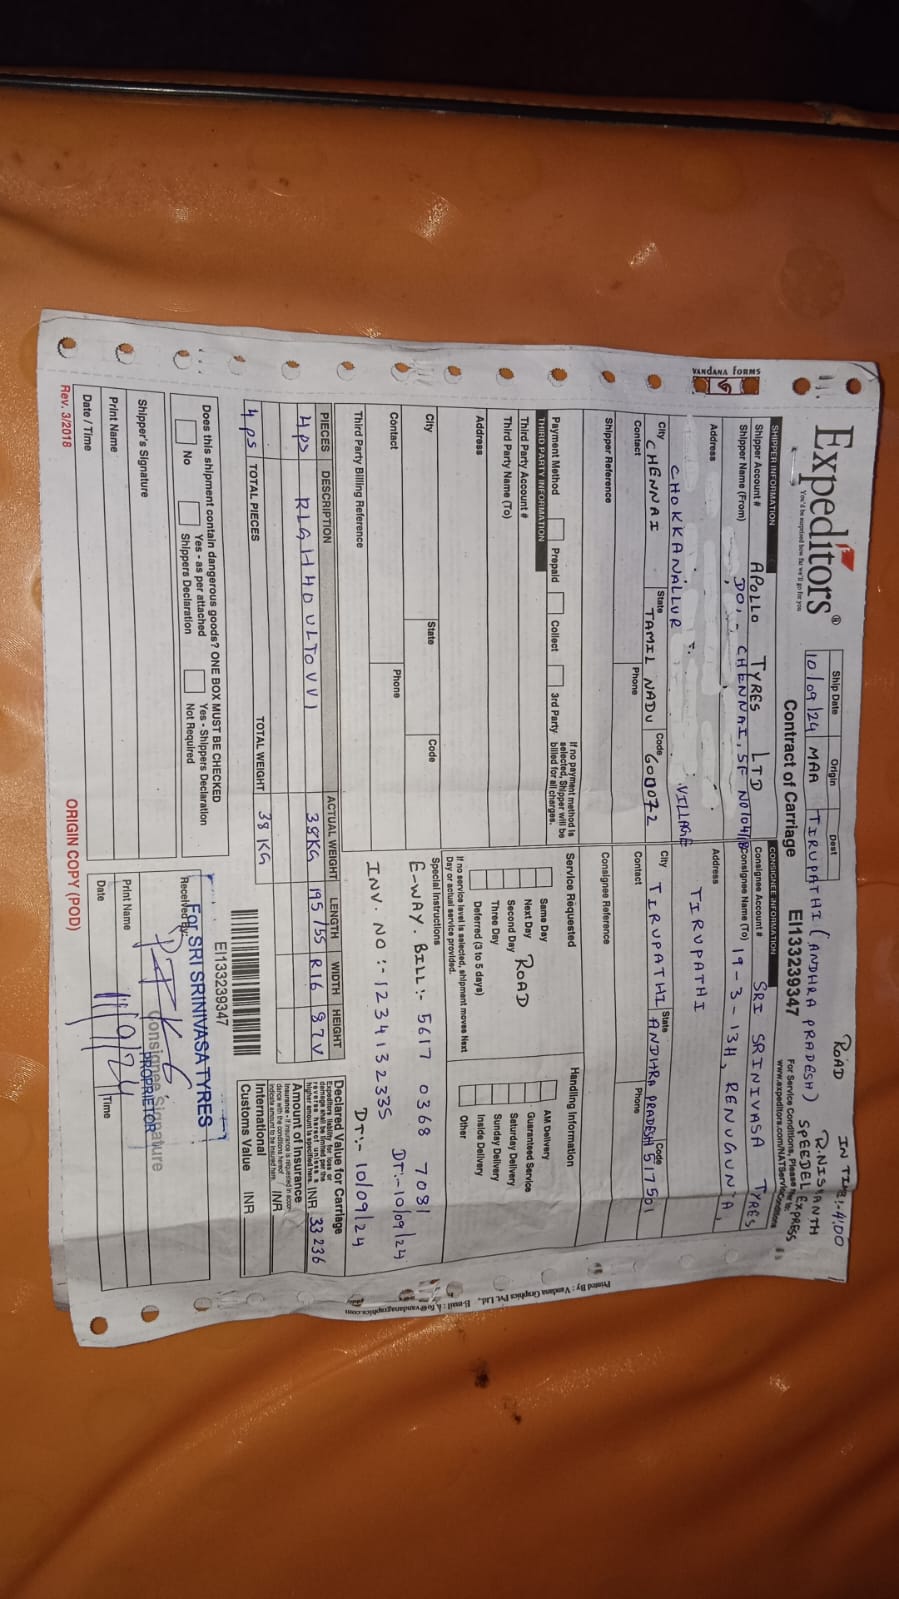 Expeditors®
You'd be surprised how far we'll go for you
Ship Date Origin Dest
10/09/24 MAA TIRUPATHI (ANDHRA PRADESH)
ROAD
IN TIME:-4:00
R.NISHANTH
SPEEDEL EXPRESS
Contract of Carriage EI133239347
For Service Conditions, Please
www.expeditors.com/NATServiceConditions
SHIPPER INFORMATION
Shipper Account #
APOLLO TYRES LTD
Shipper Name (From)
DO, - CHENNAI, SF NO 104/1B
Address
CHOKKANALLUR VILLAGE
City State Code
CHENNAI TAMIL NADU 600072
Contact Phone
Shipper Reference
CONSIGNEE INFORMATION
Consignee Account #
SRI SRINIVASA TYRES
Consignee Name (To)
19-3-13H, RENUGUNTA,
Address
TIRUPATHI
City State Code
TIRUPATHI ANDHRA PRADESH 517501
Contact Phone
Consignee Reference
Payment Method Prepaid Collect 3rd Party
If no payment method is selected, Shipper will be billed for all charges.
THIRD PARTY INFORMATION
Third Party Account #
Third Party Name (To)
Address
City State Code
Contact Phone
Third Party Billing Reference
Service Requested
Same Day
Next Day
Second Day ROAD
Three Day
Deferred (3 to 5 days)
If no service level is selected, shipment moves Next Day or actual service provided.
Handling Information
AM Delivery
Guaranteed Service
Saturday Delivery
Sunday Delivery
Inside Delivery
Other
Special Instructions
E-WAY. BILL:- 5617 0368 7031 DT:-10/09/24
INV. NO:- 1234132335 DT:- 10/09/24
PIECES DESCRIPTION ACTUAL WEIGHT LENGTH WIDTH HEIGHT
4 ps R1GHHOULTOVV1 38KG 195/55 R16 87V
4 ps TOTAL PIECES TOTAL WEIGHT 38 KG
Declared Value for Carriage
INR 33 236
Amount of Insurance
INR
International
Customs Value INR
Does this shipment contain dangerous goods? ONE BOX MUST BE CHECKED
No
Yes - as per attached Shippers Declaration
Yes - Shippers Declaration Not Required
EI133239347
Shipper's Signature
Print Name
Date / Time
Received By:
For SRI SRINIVASA TYRES
Consignee Signature
PROPRIETOR
Print Name
Date 11/9/24 Time
Rev. 3/2018
ORIGIN COPY (POD)
VANDANA FORMS
Printed By : Vandana Graphics Pvt. Ltd.,